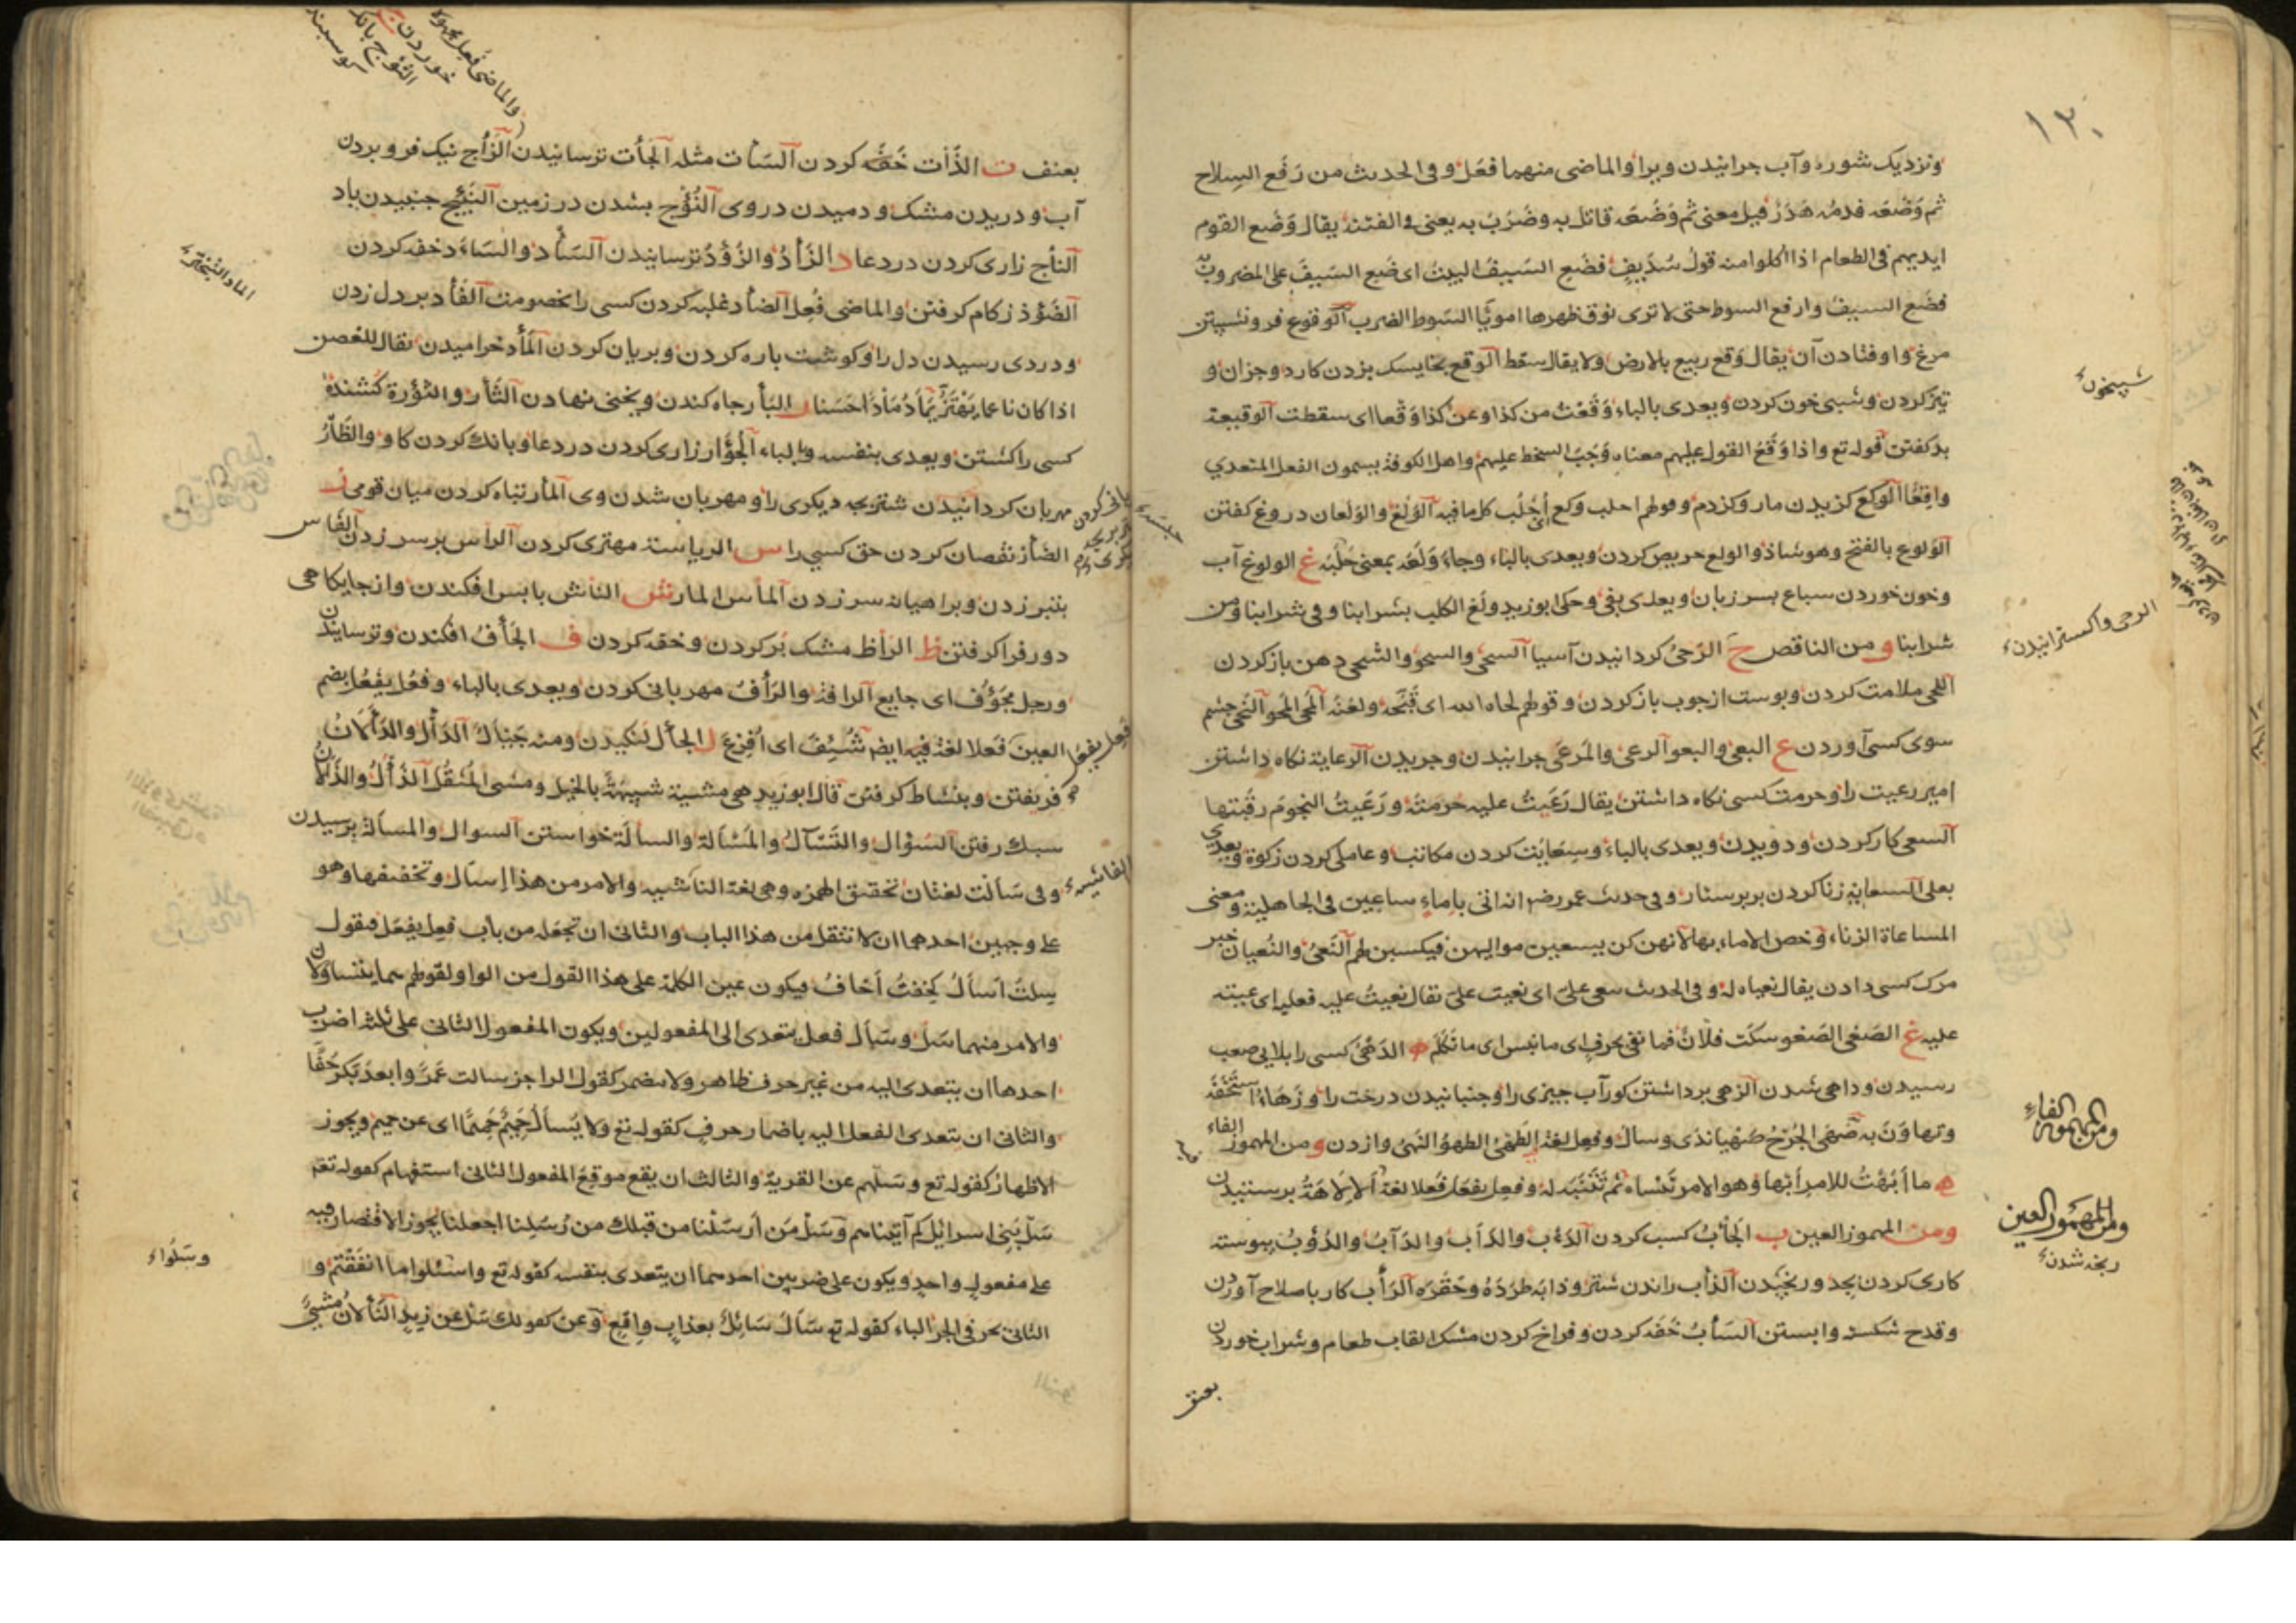 ١٣٠
ونزدیک شوره وآب چرانیدن ویرا والماضی منهما فعَل وفی الحدیث من رَفَع السِلاح
ثم وَضَعَه فدمُه هَدَرٌ قیل معنی ثم وَضَعَه قاتل به وضَرَبَ به یعنی فی الفتنة یقال وَضَع القوم
ایدیهم فی الطعام اذا اکلوا منه قول سُدَیفٍ فضَعِ السَیفَ الیهِ ای ضَعِ السَیفَ علی المضروب به
فضَعِ السیفَ وارفع السوط حتی لا تری فوق ظهرها امویًّا السَوط الضرب الوقوع فرو نشستن
مرغ واوفتادن آن یقال وَقع ربیع بالارض ولا یقال سقط الوقع بخایسک بزدن کارد وجزان و
تیز کردن وشبی خون کردن ویعدی بالباء وَقَعْتُ من کذا وعن کذا وَقْعا ای سقطت الوقیعة
بد کفتن قوله تع واذا وَقَعَ القول علیهم معناه وَجَبَ السخط علیهم واهل الکوفة یسمون الفعل المتعدی
واقِعًا الوکع کزیدن مار وکزدم وقولهم احلب وکع ای احلُب کل ما فیه الوَلْع والوَلَعان دروغ کفتن
الوَلوع بالفتح وهو شاذ والولع حریص کردن ویعدی بالباء وجاء وَلَعَه بمعنی خَلَبَه غ الولوغ آب
وخون خوردن سباع بسر زبان ویعدی بفی وحکی ابو زید ولغ الکلب بشرابنا وفی شرابنا ومن
شرابنا و من الناقص ح الرَحیُ کردانیدن آسیا السحی والسحو والشحی دهن باز کردن
اللحی ملامت کردن وپوست از چوب باز کردن وقولهم لحاه الله ای قَبَّحَه ولعَنَه المحی المحو النحی چشم
سوی کسی آوردن ع البعی والبعو الرعی والمَرعَی چرانیدن وچریدن الرعایة نکاه داشتن
امیر رعیت را وحرمت کسی نکاه داشتن یقال رَعَیتُ علیه حُرمَتَه ورَعَیتُ النجومَ رقَبتها
السعی کار کردن ودویدن ویعدی بالباء وسِعایَت کردن مکاتب وعاملی کردن زکوة ویعدی
بعلی السعایة زنا کردن پرستار وفی حدیث عمر رضه انه اتی باماءٍ ساعین فی الجاهلیة ومعنی
المساعاة الزناء وخص الاماء بها لانهن کن یسعین لموالیهن فیکسبن لهم النَعیُ والنُعیان خبر
مرک کسی دادن یقال نعیاه له وفی الحدیث سعی علیَّ ای نعیت علیَّ یقال نعیتُ علیه فعلها ای عیبته
علیه غ الصَغی الصَغو سکت فلانٌ فما نغی بحرفٍ ای ما نبس ای ما تکلّم ه الدَهیُ کسی را بلایی صعب
رسیدن وداهی شدن الزهی برداشتن کور آب چیزی را وجنبانیدن درخت را وزَهاهُ استَخَفَّه
وتهاوَنَ به صَهَی الجُرحُ صَهْیا نَدی وسال وفعِل لغة الطَهیُ الطهوُ النهیُ وازدن و من المهموز الفاء
ه ما أبَهْتُ للامرِ أبْها وهو الامر تَنساه ثم تَتَنَبَّه له وفعِل یفعَل فعَلا لغة الالاهَةُ پرستیدن
ومن المهموز العین ب الجَأبُ کسب کردن الدَأب والدَأَب والدَأَبُ والدُؤُوبُ پیوسته
کاری کردن بجد ورنجیدن الذأب راندن شتر وذأبه طَرَدَهُ وحَقَّرَه الرَأب کار باصلاح آوردن
وقدح شکسته وا بستن السَأبُ خَفَه کردن وفراخ کردن مشک القاب طعام وشراب خوردن
بعنف
شبیخون
ومن المهموز الفاء
ومن المهموز العین
رنجه شدن
بعنف ت الذَأت خَفَه کردن السَأت مثله الجَأت ترسانیدن الزَأج نیک فرو بردن
آب ودریدن مشک ودمیدن در وی النُؤج بشدن در زمین النَئیج جنبیدن باد
النأج زاری کردن در دعا د الزَأدُ والزُؤدُ ترسانیدن السَأد والسَاءَد خفه کردن
الضَؤد زکام کرفتن والماضی فُعِل الضأد غلبه کردن کسی را بخصومت الفَأد بر دل زدن
ودردی رسیدن دل را وکوشت پاره کردن وبریان کردن المَأد خرامیدن یقال للغصن
اذا کان ناعما یَهتَزُّ یَمأَدُ مَأدًا حَسَنا ر البَأر چاه کندن وپخنی نهادن الثَأر والثؤرة کشندهٔ
کسی را کشتن ویعدی بنفسه وبالباء الجُؤَار زاری کردن در دعا وبانک کردن کاو والظَأرُ
مهربان کردانیدن شتر بچه دیکری را ومهربان شدن وی المأر تباه کردن میان قومی ز
الضَأز نقصان کردن حق کسی را س الریاسة مهتری کردن الراس بر سر زدن الفَأس
بتبر زدن وبر میانه سر زدن المأس المأر ش النأش باپس افکندن واز جایکاهی
دور فرا کرفتن ظ الرَأظ مشک پُر کردن وخفه کردن ف الجَأفُ افکندن وترسانیدن
ورجل مَجؤُف ای جایع الرافة والرَأفُ مهربانی کردن ویعدی بالباء وفعُل یفعُل بضم
العین فَعلا لغة فیه ایضا شُئِفَ ای اُفزِعَ ل الجأل لنکیدن ومنه جَیأَلُ الدَأل والدَأَلانُ
فریفتن وبنشاط کرفتن قال ابو زید هی مشیة شبیهةٌ بالختل ومشی المُثقَل الذَأَلُ والذَأَلانُ
سبک رفتن السُؤال والتَسْآلُ والمَسْألة والسألَة خواستن السوال والمسألة پرسیدن
وفی سَألت لغتان تحقیق الهمزه وهی لغة الناشبیه والامر من هذا اِسأل وتخفیفها وهو
علی وجهین احدهما ان لا تنقل من هذا الباب والثانی ان تجعله من باب فعِل یفعَل فیقول
سِلتُ اَسالُ کخِفتُ أخافُ ویکون عین الکلمة علی هذا القول من الواو لقولهم هما یتساولان
والامر منهما سَل وسَأل فعل یتعدی الی المفعولین ویکون المفعول الثانی علی ثلثة اضرب
احدها ان یتعدی الیه من غیر حرف ظاهر ولا مضمر کقول الراجز سالت عَمرًا بعد بَکرٍ خُفًّا
والثانی ان یتعدی الفعل الیه باضمار حرفٍ کقوله تع ولا یَسألُ حَمیمٌ حَمیمًا ای عن حمیم ویجوز
الاظهار کقوله تع وسَلهم عن القریة والثالث ان یقع موقِعَ المفعول الثانی استفهام کقوله تعم
سَل بَنی اسرائیل کم آتیناهم وسَل مَن اَرسَلنا من قبلک من رُسُلِنا اجعلنا یجوز الاقتصار فیه
علی مفعولٍ واحدٍ ویکون علی ضربین احدهما ان یتعدی بنفسه کقوله تع واسئلوا ما انفَقْتُم و
الثانی بحرفی الجر الباء کقوله تع سَألَ سَائِلٌ بعذابٍ واقِعٍ وعن کقولک سَل عن زیدٍ النَألانُ مشیٌ
والماضی فُعِل
وسَلُوا